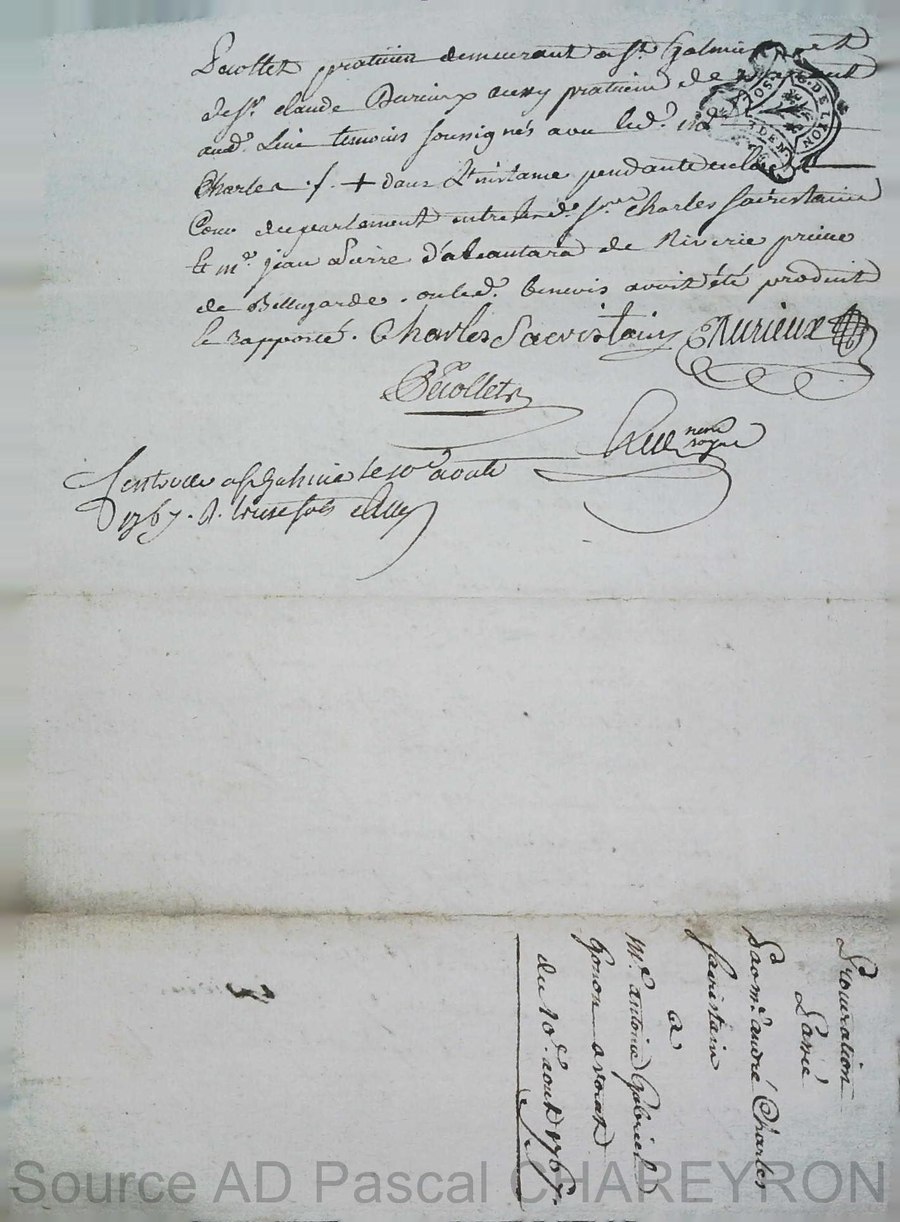 Decollet praticien demeurant a St. Galmier et
de Sr. claude Durieux aussy praticien de
aud. Lieu temoins soussignés avec led. me
Charles .f. + dans L'instance pendante en la
Cour du parlement entre led. Sr. Charles Sacristain
et mre. jean pierre d'alcantara de Riverie prieur
de Bellegarde. ou led. benevis avoit été produit
le rapporté. Charles Sacristain Durieux
Décollet
nore royal
Controllé a St Galmier le 10e aoust
1767. R. treize sols
G. DE LION
Procuration
Passé
Par me. andré Charles
Sacristain
a
Me. antoine Gabriel
Gonon avocat
du 10e. aout 1767.
Source AD Pascal CHAREYRON